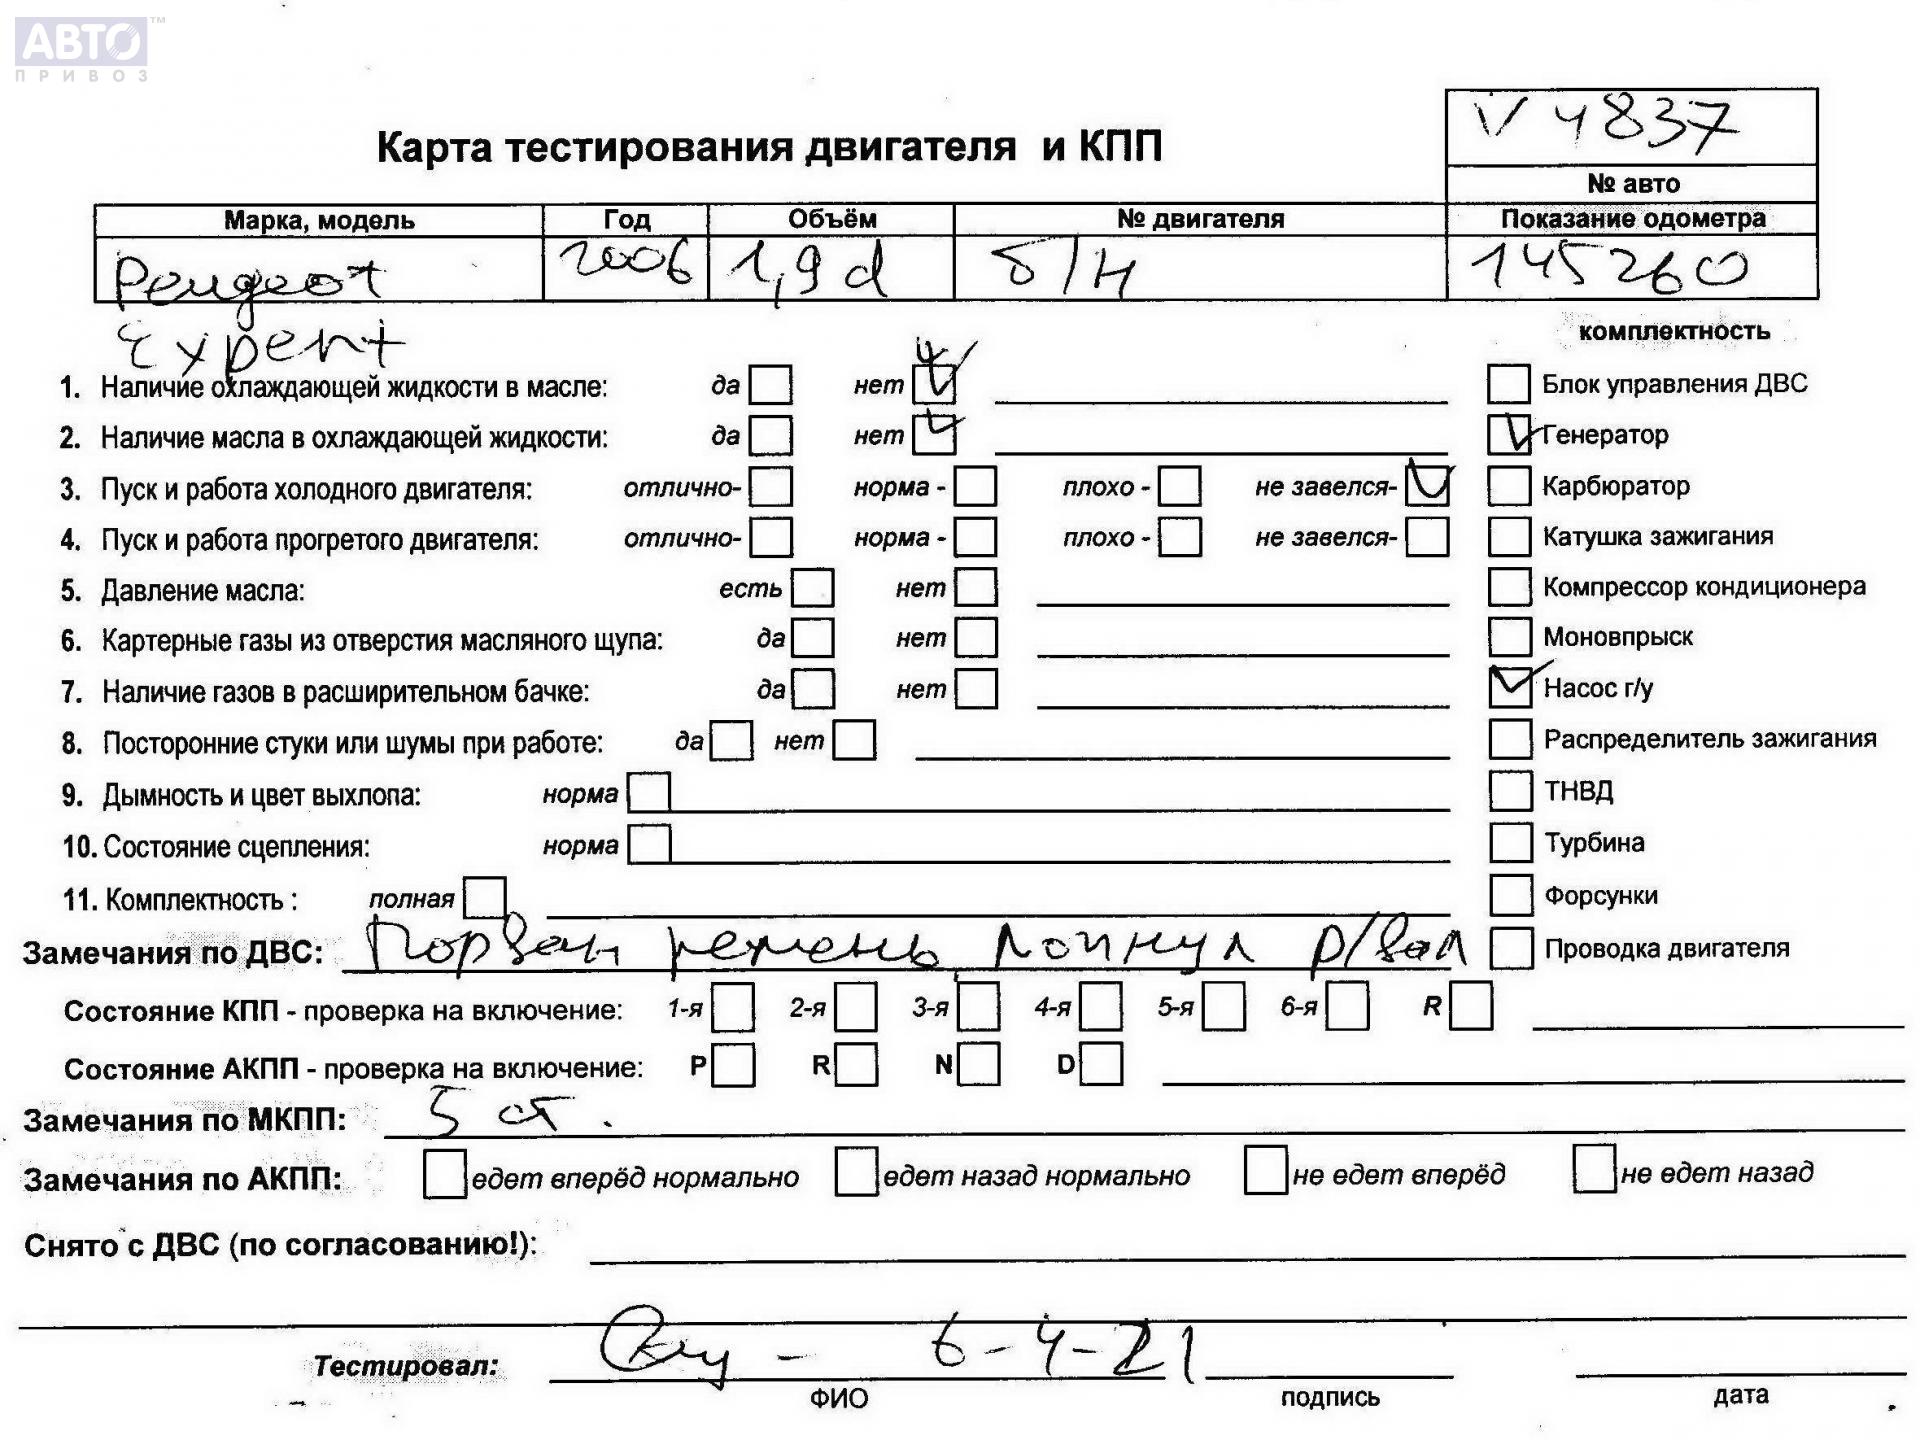 АВТО™
ПРИВОЗ
V 4837
Карта тестирования двигателя и КПП
№ авто
Марка, модель Год Объём № двигателя Показание одометра
Peugeot 2006 1,9 d б/н 145260
Expert
комплектность
1. Наличие охлаждающей жидкости в масле: да нет Блок управления ДВС
2. Наличие масла в охлаждающей жидкости: да нет Генератор
3. Пуск и работа холодного двигателя: отлично- норма - плохо - не завелся- Карбюратор
4. Пуск и работа прогретого двигателя: отлично- норма - плохо - не завелся- Катушка зажигания
5. Давление масла: есть нет Компрессор кондиционера
6. Картерные газы из отверстия масляного щупа: да нет Моновпрыск
7. Наличие газов в расширительном бачке: да нет Насос г/у
8. Посторонние стуки или шумы при работе: да нет Распределитель зажигания
9. Дымность и цвет выхлопа: норма ТНВД
10. Состояние сцепления: норма Турбина
11. Комплектность : полная Форсунки
Замечания по ДВС: Порван ремень лопнул р/вал Проводка двигателя
Состояние КПП - проверка на включение: 1-я 2-я 3-я 4-я 5-я 6-я R
Состояние АКПП - проверка на включение: P R N D
Замечания по МКПП: 5 ст.
Замечания по АКПП: едет вперёд нормально едет назад нормально не едет вперёд не едет назад
Снято с ДВС (по согласованию!):
Тестировал: - 6-4-21
ФИО подпись дата